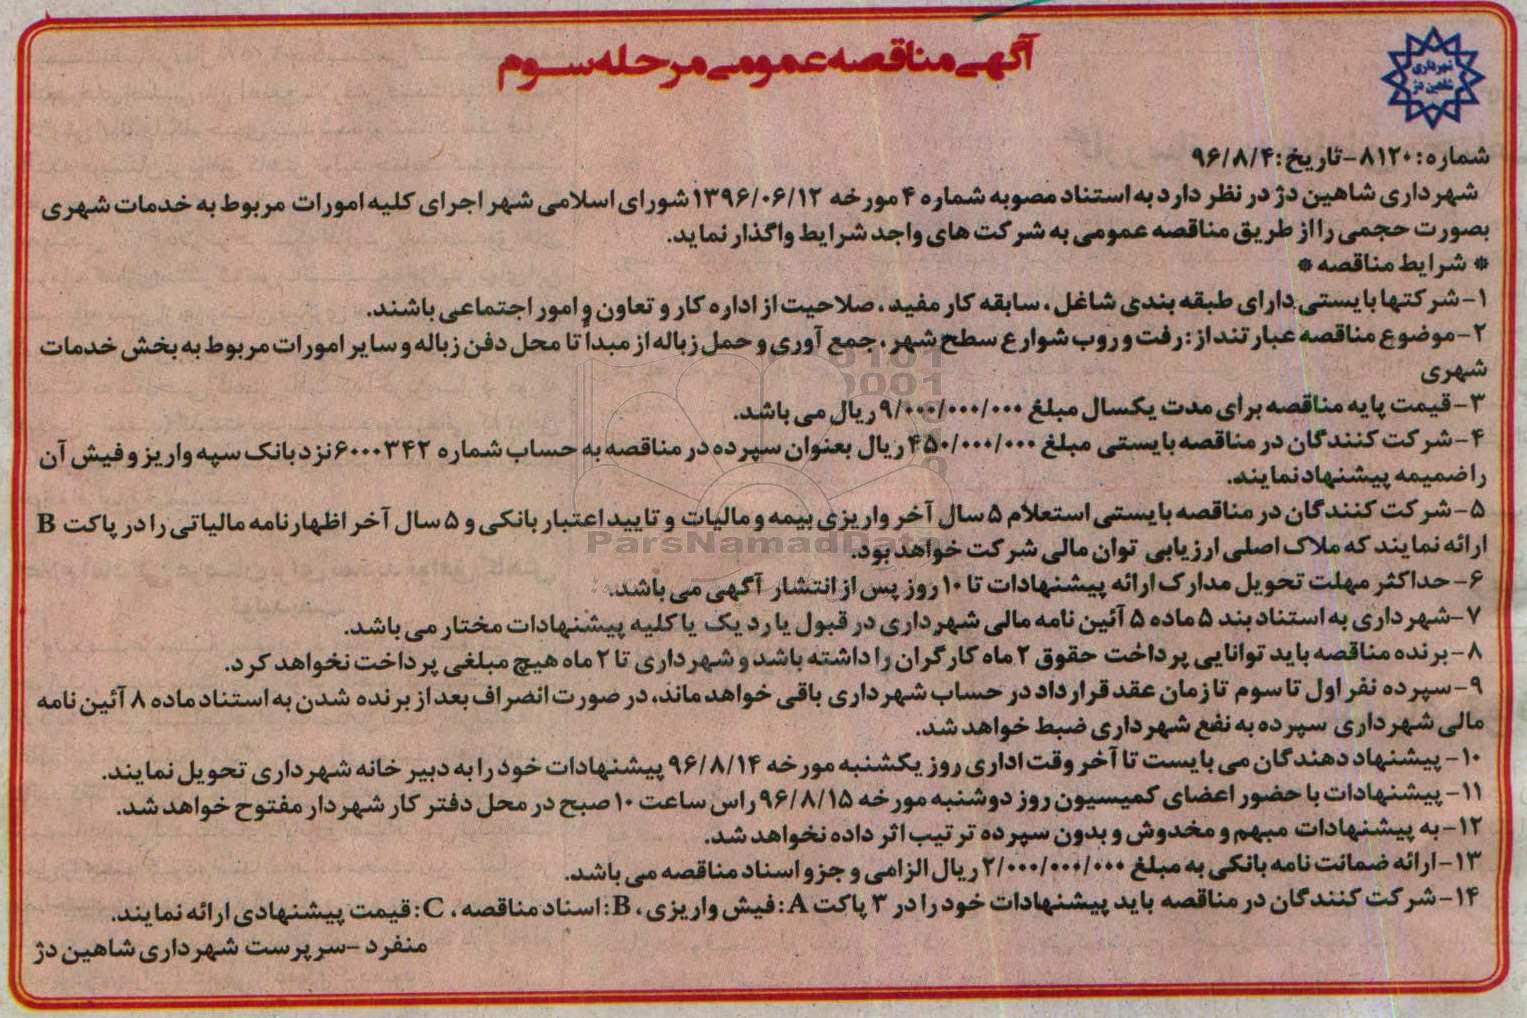 آگهی مناقصه عمومی مرحله سوم
شهرداری
شاهین دژ
شماره: ۸۱۲۰-تاریخ: ۹۶/۸/۴
شهرداری شاهین دژ در نظر دارد به استناد مصوبه شماره ۴ مورخه ۱۳۹۶/۰۶/۱۲ شورای اسلامی شهر اجرای کلیه امورات مربوط به خدمات شهری
بصورت حجمی را از طریق مناقصه عمومی به شرکت های واجد شرایط واگذار نماید.
* شرایط مناقصه *
۱-شرکتها بایستی دارای طبقه بندی شاغل، سابقه کار مفید، صلاحیت از اداره کار و تعاون و امور اجتماعی باشند.
۲-موضوع مناقصه عبارتند از: رفت و روب شوارع سطح شهر، جمع آوری و حمل زباله از مبدأ تا محل دفن زباله و سایر امورات مربوط به بخش خدمات
شهری
۳-قیمت پایه مناقصه برای مدت یکسال مبلغ ۹/۰۰۰/۰۰۰/۰۰۰ ریال می باشد.
۴-شرکت کنندگان در مناقصه بایستی مبلغ ۴۵۰/۰۰۰/۰۰۰ ریال بعنوان سپرده در مناقصه به حساب شماره ۶۰۰۰۳۴۲ نزد بانک سپه واریز و فیش آن
را ضمیمه پیشنهاد نمایند.
۵-شرکت کنندگان در مناقصه بایستی استعلام ۵ سال آخر واریزی بیمه و مالیات و تایید اعتبار بانکی و ۵ سال آخر اظهارنامه مالیاتی را در پاکت B
ارائه نمایند که ملاک اصلی ارزیابی توان مالی شرکت خواهد بود.
۶-حداکثر مهلت تحویل مدارک ارائه پیشنهادات تا ۱۰ روز پس از انتشار آگهی می باشد.
۷-شهرداری به استناد بند ۵ ماده ۵ آئین نامه مالی شهرداری در قبول یا رد یک یا کلیه پیشنهادات مختار می باشد.
۸-برنده مناقصه باید توانایی پرداخت حقوق ۲ ماه کارگران را داشته باشد و شهرداری تا ۲ ماه هیچ مبلغی پرداخت نخواهد کرد.
۹-سپرده نفر اول تا سوم تا زمان عقد قرارداد در حساب شهرداری باقی خواهد ماند، در صورت انصراف بعد از برنده شدن به استناد ماده ۸ آئین نامه
مالی شهرداری سپرده به نفع شهرداری ضبط خواهد شد.
۱۰- پیشنهاد دهندگان می بایست تا آخر وقت اداری روز یکشنبه مورخه ۹۶/۸/۱۴ پیشنهادات خود را به دبیر خانه شهرداری تحویل نمایند.
۱۱- پیشنهادات با حضور اعضای کمیسیون روز دوشنبه مورخه ۹۶/۸/۱۵ راس ساعت ۱۰ صبح در محل دفتر کار شهردار مفتوح خواهد شد.
۱۲-به پیشنهادات مبهم و مخدوش و بدون سپرده ترتیب اثر داده نخواهد شد.
۱۳-ارائه ضمانت نامه بانکی به مبلغ ۲/۰۰۰/۰۰۰/۰۰۰ ریال الزامی و جزو اسناد مناقصه می باشد.
۱۴-شرکت کنندگان در مناقصه باید پیشنهادات خود را در ۳ پاکت A: فیش واریزی، B: اسناد مناقصه، C: قیمت پیشنهادی ارائه نمایند.
منفرد -سرپرست شهرداری شاهین دژ
ParsNamadData